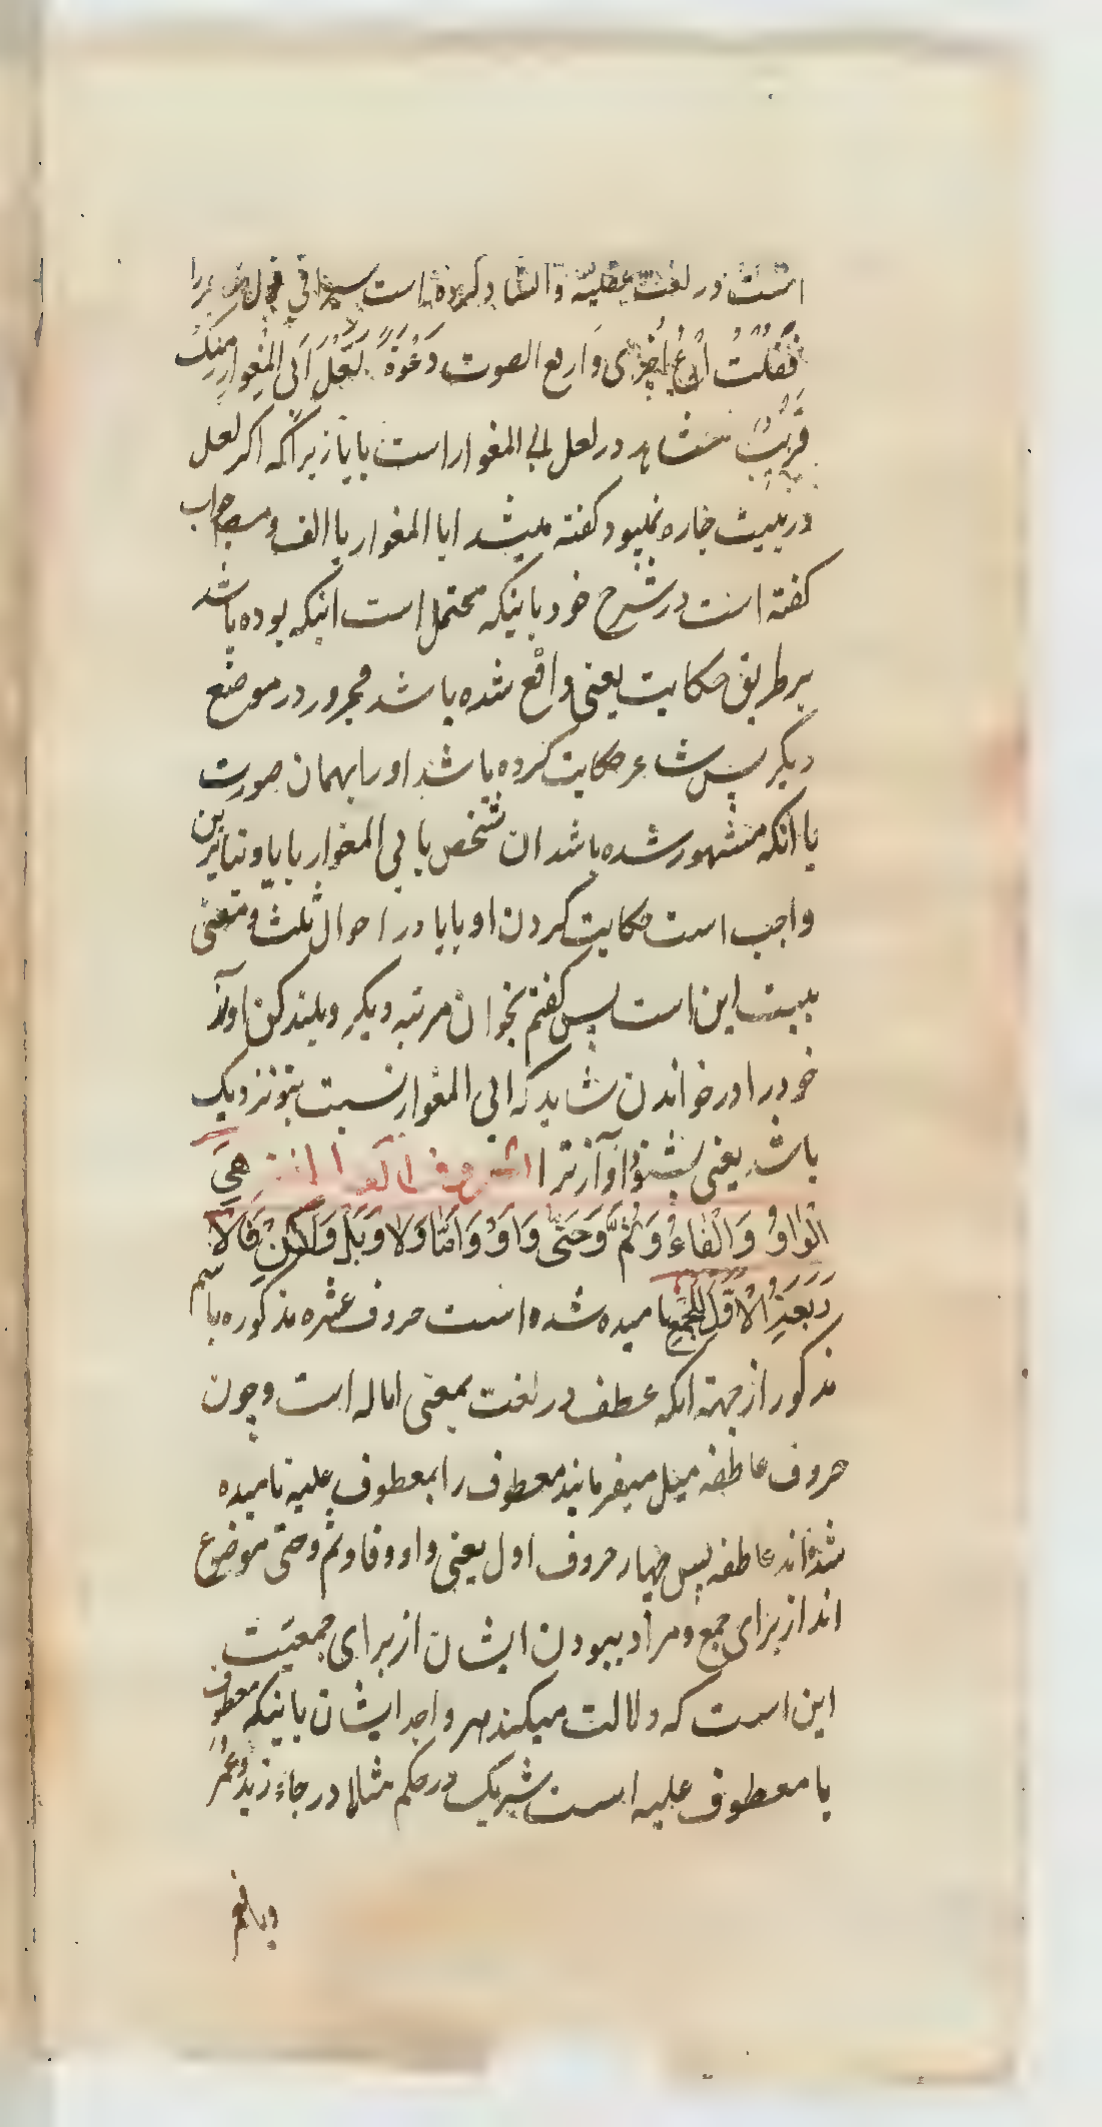 است در لغت عقلیه و انشاد کرده است سیرافی قول شاعر را
فَقُلْتُ ادْعُ اُخْرٰی وَارفع الصوت دَعْوَةً لَعَلَّ اَبِی الْمِغْوارِ مِنْکَ
قَرِیْبٌ شاهد در لعل ابی المغوار است بایا زیرا که اکر لعل
در بیت جاره نمیبود کفته میشد ابا المغوار با الف و مصراب
کفته است در شرح خود باینکه محتمل است اینکه بوده باشد
بر طریق حکایت یعنی واقع شده باشد مجرور در موضع
دیکر پس شاعر حکایت کرده باشد او را بهمان صورت
یا انکه مشهور شده باشد ان شخص بابی المغوار بایا و بنابرین
واجب است حکایت کردن او بایا در احوال ثلث و معنی
بیت این است پس کفتم بخوان مرتبه دیکر و بلند کن اواز
خود را در خواندن شاید که ابی المغوار نسبت بتو نزدیک
باشد یعنی بشنود اواز ترا الحروف العاطفة هِیَ
الْوٰاوُ وَالْفٰاءُ وَثُمَّ وَحَتّٰی وَاَوْ وَاَمّٰا وَلا وَبَلْ وَلٰکِنْ فَالْا
رَبَعَةُ الْاُوَلُ لِلْجَمْعِ نامیده شده است حروف عشره مذکوره باسم
مذکور از جهته انکه عطف در لغت بمعنی اماله است و چون
حروف عاطفه میل میفرمایند معطوف را بمعطوف علیه نامیده
شده‌اند عاطفه پس چهار حروف اول یعنی واو و فا و ثم و حتی موضوع
اند از برای جمع و مراد ببودن ایشان از برای جمعیّت
این است که دلالت میکند هر واحد ایشان باینکه معطوف
با معطوف علیه است شریک در حکم مثلا در جاء زیدٌ وعمرٌ